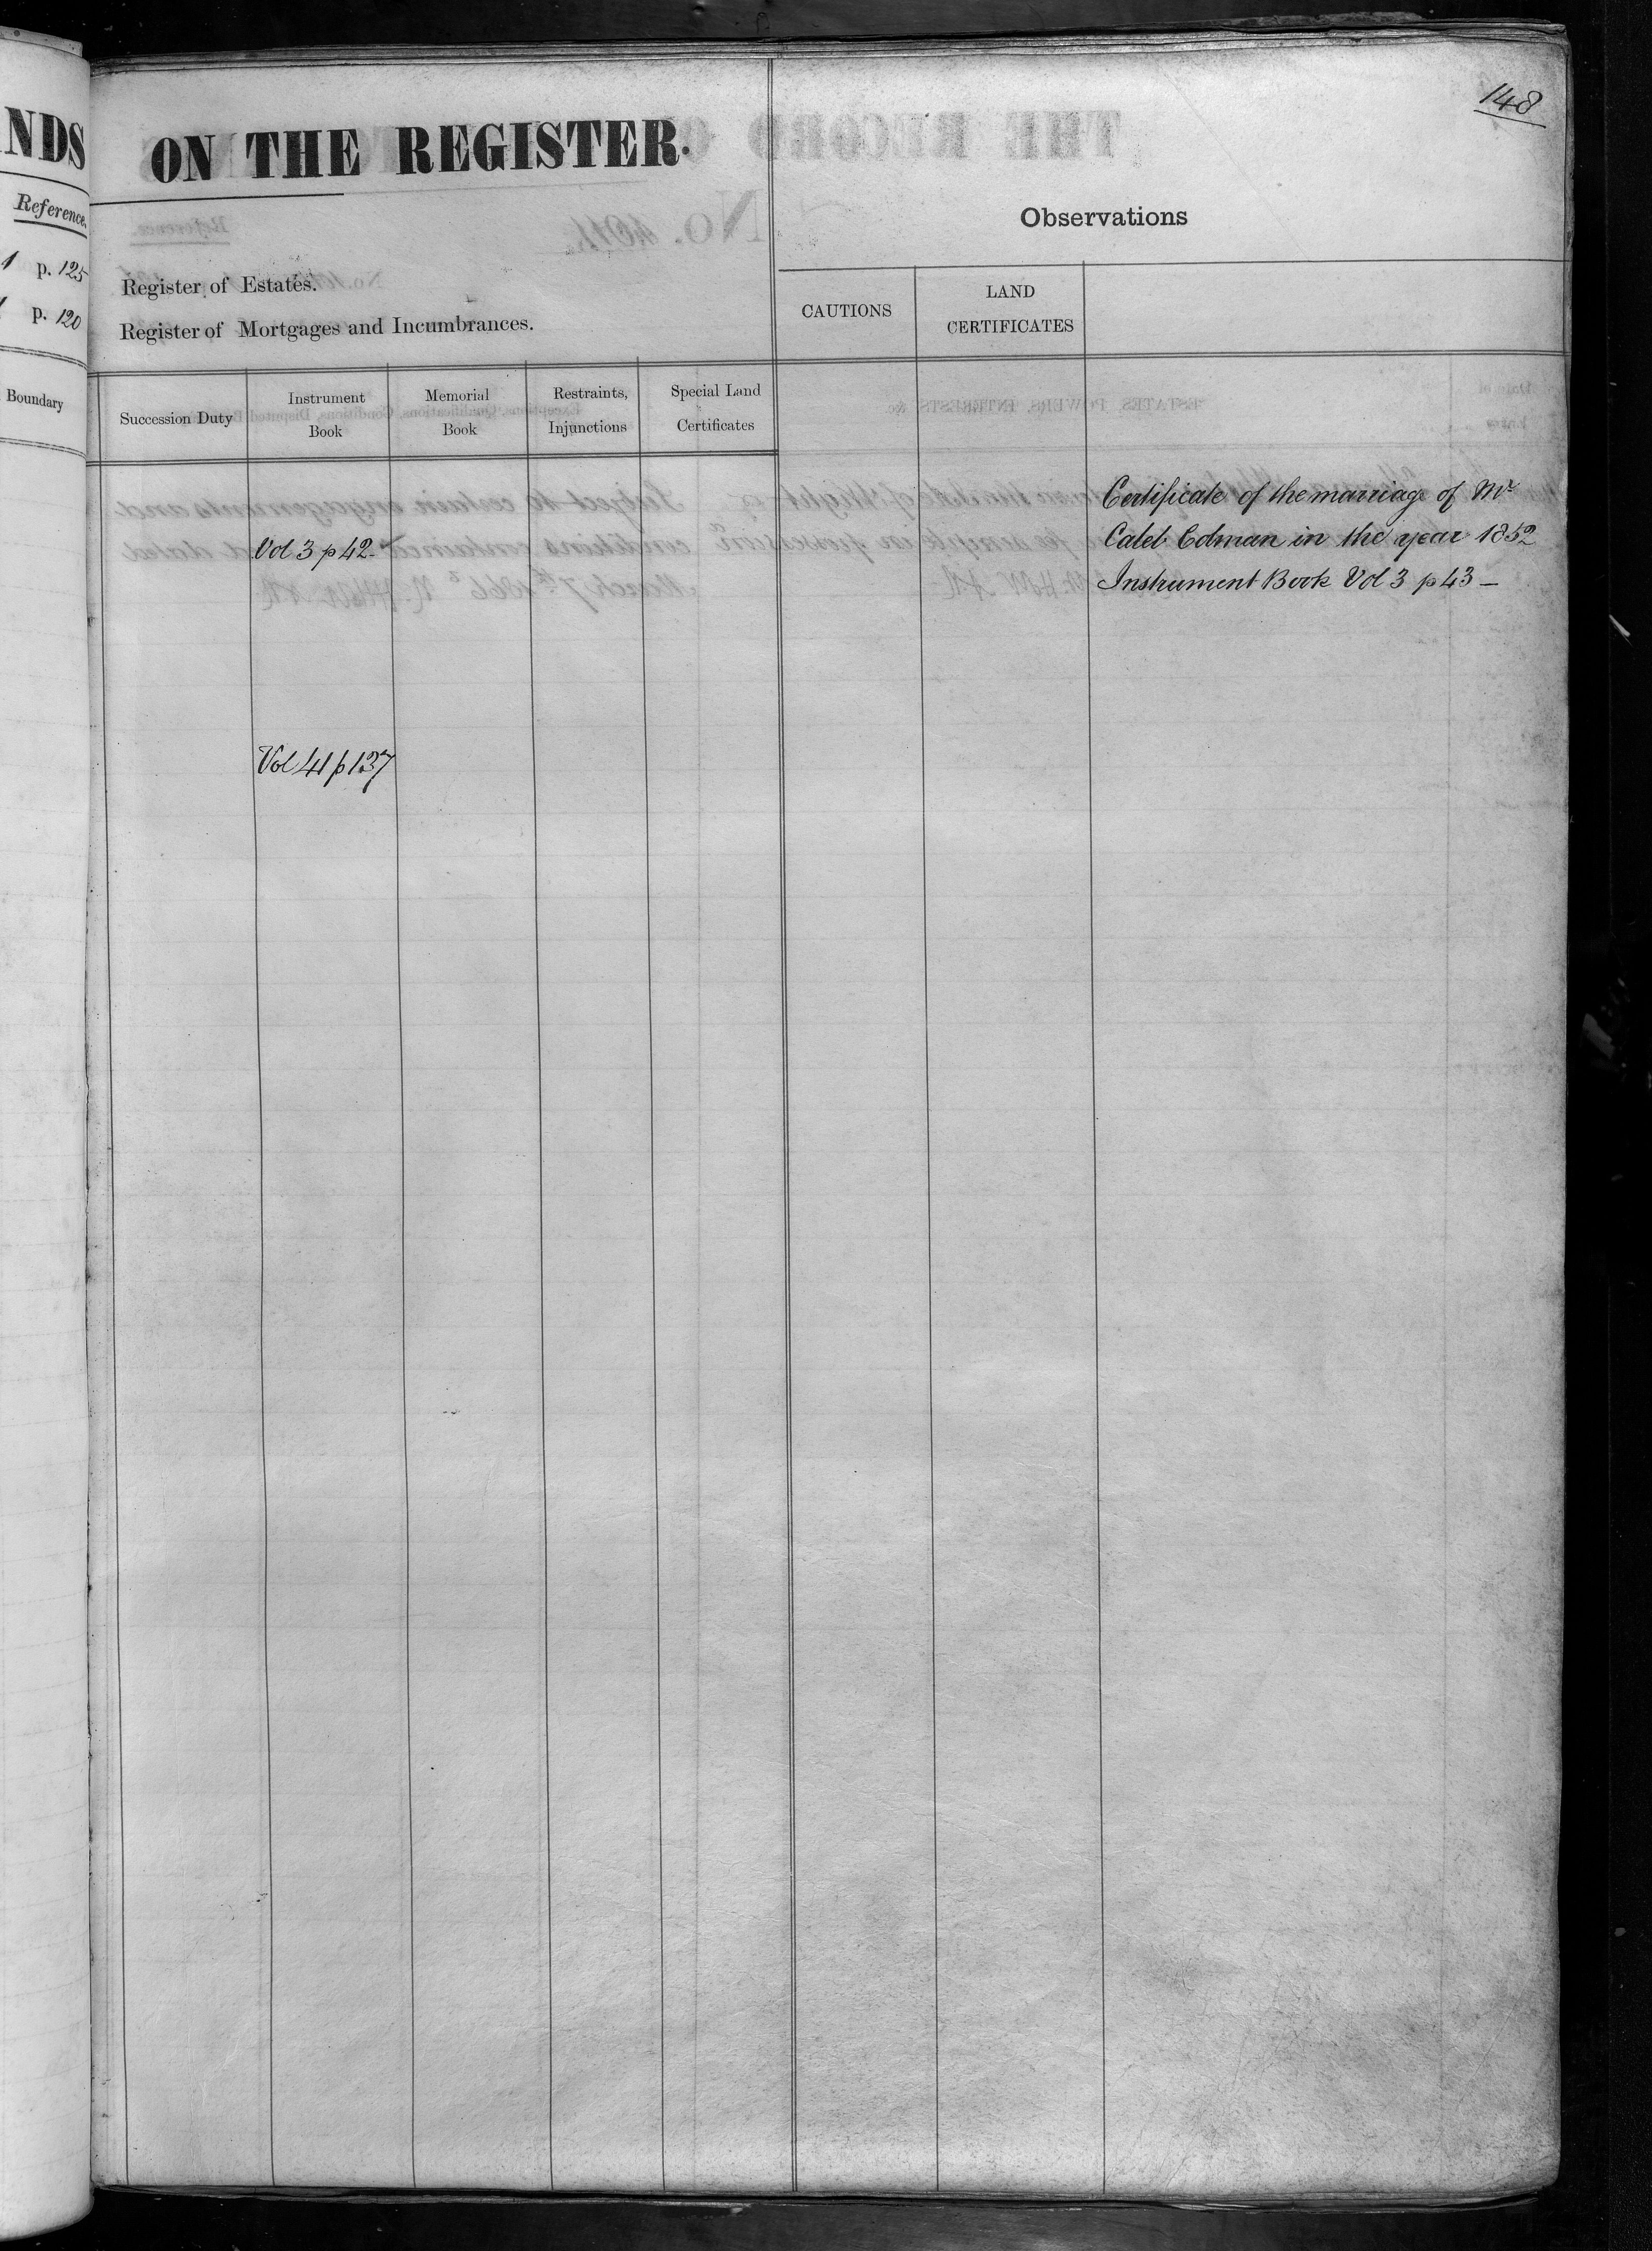 148
NDS
ON THE REGISTER.
Observations
Reference.
p. 125
p. 120
Register of Estates.
Register of Mortgages and Incumbrances.
CAUTIONS
LAND
CERTIFICATES
Boundary
Succession Duty
Instrument
Book
Memorial
Book
Restraints,
Injunctions
Special Land
Certificates
Certificate of the marriage of Mr
Caleb Colman in the year 1852
Instrument Book Vol 3 p 43 —
Vol 3 p 42-
Vol 41 p 137